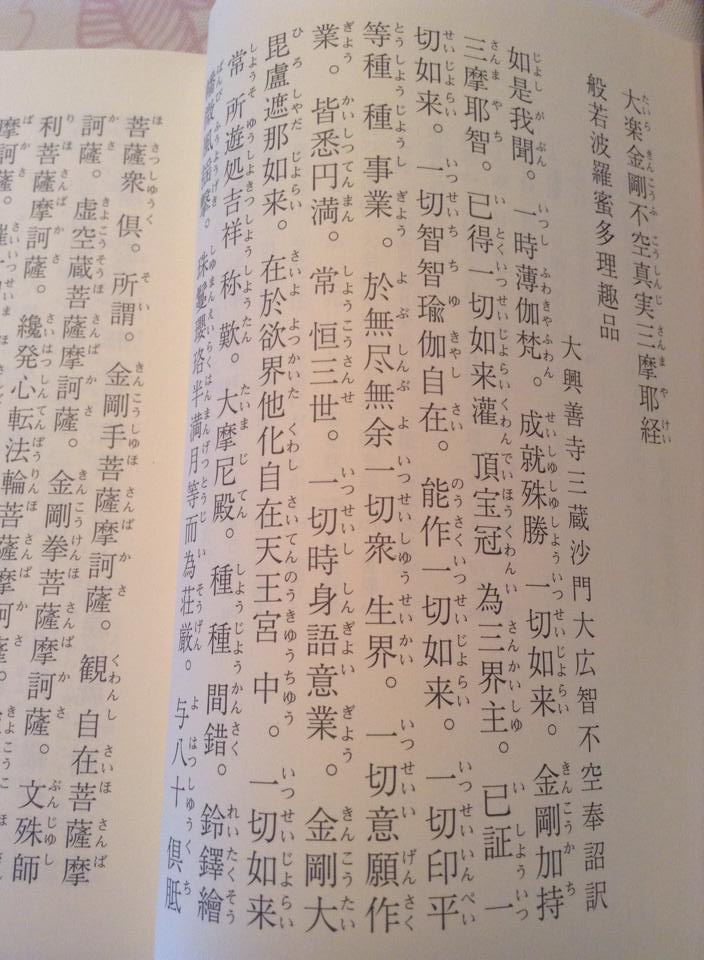 大楽金剛不空真実三摩耶経
般若波羅蜜多理趣品
大興善寺三蔵沙門大広智不空奉詔訳
如是我聞。一時薄伽梵。成就殊勝一切如来。金剛加持
三摩耶智。已得一切如来灌頂宝冠為三界主。已証一
切如来。一切智智瑜伽自在。能作一切如来。一切印平
等種種事業。於無尽無余一切衆生界。一切意願作
業。皆悉円満。常恒三世。一切時身語意業。金剛大
毘盧遮那如来。在於欲界他化自在天王宮中。一切如来
常所遊処吉祥称歎。大摩尼殿。種種間錯。鈴鐸繒
微風揺撃。珠鬘瓔珞半満月等而為荘厳。与八十倶胝
菩薩衆倶。所謂。金剛手菩薩摩訶薩。観自在菩薩摩
訶薩。虚空蔵菩薩摩訶薩。金剛拳菩薩摩訶薩。文殊師
利菩薩摩訶薩。纔発心転法輪菩薩摩訶薩。
摩訶薩。